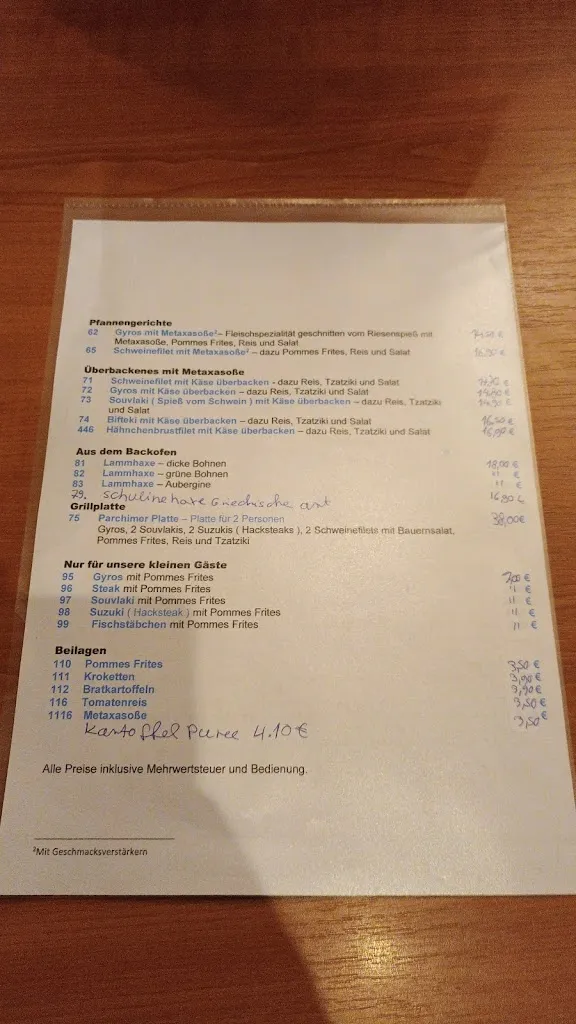 Pfannengerichte
62 Gyros mit Metaxasoße² – Fleischspezialität geschnitten vom Riesenspieß mit
Metaxasoße, Pommes Frites, Reis und Salat
65 Schweinefilet mit Metaxasoße² – dazu Pommes Frites, Reis und Salat
Überbackenes mit Metaxasoße
71 Schweinefilet mit Käse überbacken - dazu Reis, Tzatziki und Salat
72 Gyros mit Käse überbacken – dazu Reis, Tzatziki und Salat
73 Souvlaki ( Spieß vom Schwein ) mit Käse überbacken – dazu Reis, Tzatziki
und Salat
74 Bifteki mit Käse überbacken – dazu Reis, Tzatziki und Salat 16,50 €
446 Hähnchenbrustfilet mit Käse überbacken – dazu Reis, Tzatziki und Salat
Aus dem Backofen
81 Lammhaxe – dicke Bohnen 18,00 €
82 Lammhaxe – grüne Bohnen " €
83 Lammhaxe – Aubergine " €
79. Griechische art 16,90 €
Grillplatte
75 Parchimer Platte – Platte für 2 Personen 38,00€
Gyros, 2 Souvlakis, 2 Suzukis ( Hacksteaks ), 2 Schweinefilets mit Bauernsalat,
Pommes Frites, Reis und Tzatziki
Nur für unsere kleinen Gäste
95 Gyros mit Pommes Frites 7,00 €
96 Steak mit Pommes Frites " €
97 Souvlaki mit Pommes Frites " €
98 Suzuki ( Hacksteak ) mit Pommes Frites " €
99 Fischstäbchen mit Pommes Frites " €
Beilagen
110 Pommes Frites 3,50 €
111 Kroketten 3,90 €
112 Bratkartoffeln 3,90 €
116 Tomatenreis 3,50 €
1116 Metaxasoße 3,50 €
Kartoffel Puree 4.10 €
Alle Preise inklusive Mehrwertsteuer und Bedienung.
²Mit Geschmacksverstärkern